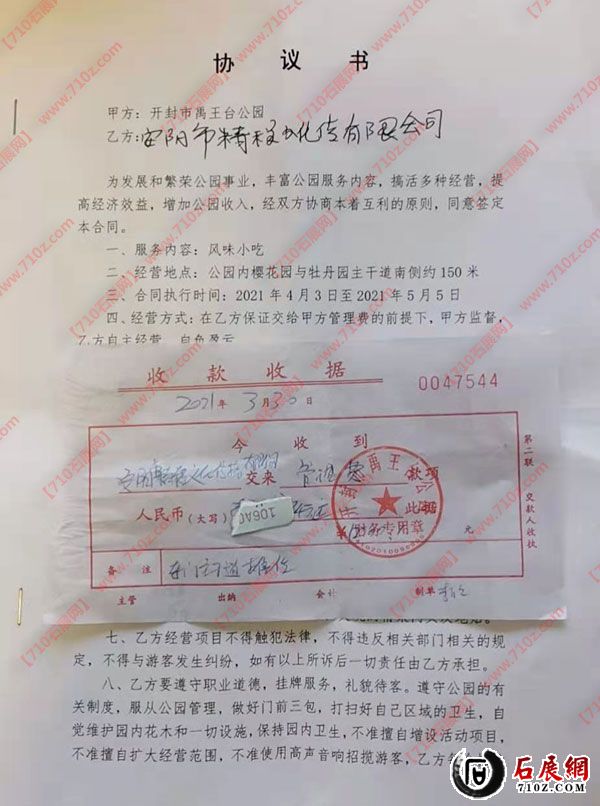 协 议 书
甲方：开封市禹王台公园
乙方：安阳市精程文化传有限公司
为发展和繁荣公园事业，丰富公园服务内容，搞活多种经营，提
高经济效益，增加公园收入，经双方协商本着互利的原则，同意签定
本合同。
一、服务内容：风味小吃
二、经营地点：公园内樱花园与牡丹园主干道南侧约 150 米
三、合同执行时间：2021 年 4 月 3 日至 2021 年 5 月 5 日
四、经营方式：在乙方保证交给甲方管理费的前提下，甲方监督，
乙方自主经营，自负盈亏
收 款 收 据
0047544
2021 年 3 月 30 日
今 收 到
交来 管理费 款项
人民币（大写） 此据
¥ 元
财务专用章
106A0
备 注
主管 出纳 会计 制单
第二联 交款人收执
七、乙方经营项目不得触犯法律，不得违反相关部门相关的规
定，不得与游客发生纠纷，如有以上所诉后一切责任由乙方承担。
八、乙方要遵守职业道德，挂牌服务，礼貌待客。遵守公园的有
关制度，服从公园管理，做好门前三包，打扫好自己区域的卫生，自
觉维护园内花木和一切设施，保持园内卫生，不准擅自增设活动项目，
不准擅自扩大经营范围，不准使用高声音响招揽游客，乙方
【710石展网】www.710z.com
石展網
710z.com